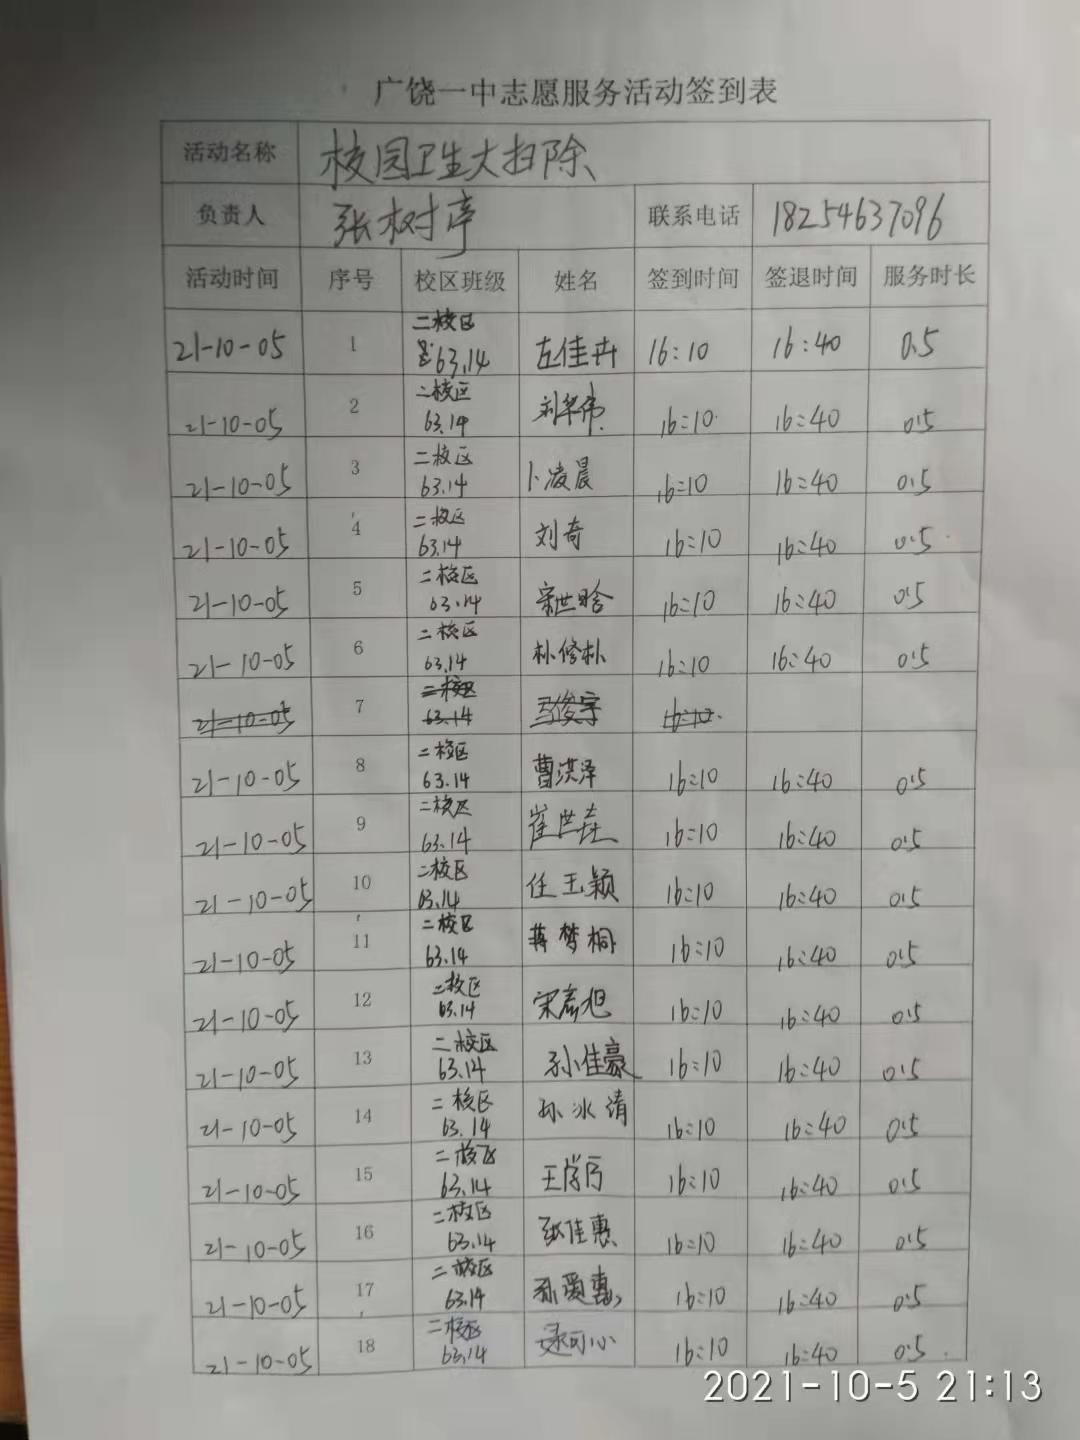 广饶一中志愿服务活动签到表
活动名称 校园卫生大扫除
负责人 张树亭 联系电话 18254637096
活动时间 序号 校区班级 姓名 签到时间 签退时间 服务时长
21-10-05 1 二校区 63.14 左佳卉 16:10 16:40 0.5
21-10-05 2 二校区 63.14 刘华伟 16:10 16:40 0.5
21-10-05 3 二校区 63.14 卜凌晨 16:10 16:40 0.5
21-10-05 4 二校区 63.14 刘奇 16:10 16:40 0.5
21-10-05 5 二校区 63.14 宋世晗 16:10 16:40 0.5
21-10-05 6 二校区 63.14 朴修朴 16:10 16:40 0.5
21-10-05 7 二校区 63.14 马俊宇 16:10
21-10-05 8 二校区 63.14 曹洪泽 16:10 16:40 0.5
21-10-05 9 二校区 63.14 崔世垚 16:10 16:40 0.5
21-10-05 10 二校区 63.14 任玉颖 16:10 16:40 0.5
21-10-05 11 二校区 63.14 蒋梦桐 16:10 16:40 0.5
21-10-05 12 二校区 63.14 宋彦旭 16:10 16:40 0.5
21-10-05 13 二校区 63.14 孙佳豪 16:10 16:40 0.5
21-10-05 14 二校区 63.14 孙冰清 16:10 16:40 0.5
21-10-05 15 二校区 63.14 王学厉 16:10 16:40 0.5
21-10-05 16 二校区 63.14 张佳惠 16:10 16:40 0.5
21-10-05 17 二校区 63.14 孙爱惠 16:10 16:40 0.5
21-10-05 18 二校区 63.14 可心 16:10 16:40 0.5
2021-10-5 21:13